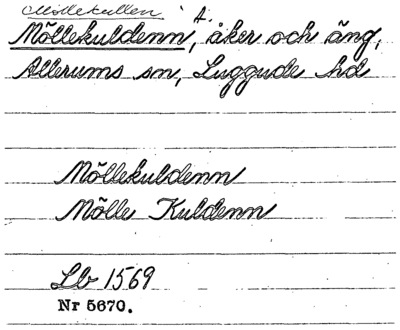 Möllekullen A.
Möllekuldenn, åker och äng,
Allerums sn, Luggude hd
Möllekuldenn
Mölle Kuldenn
Lb 1569
Nr 5670.